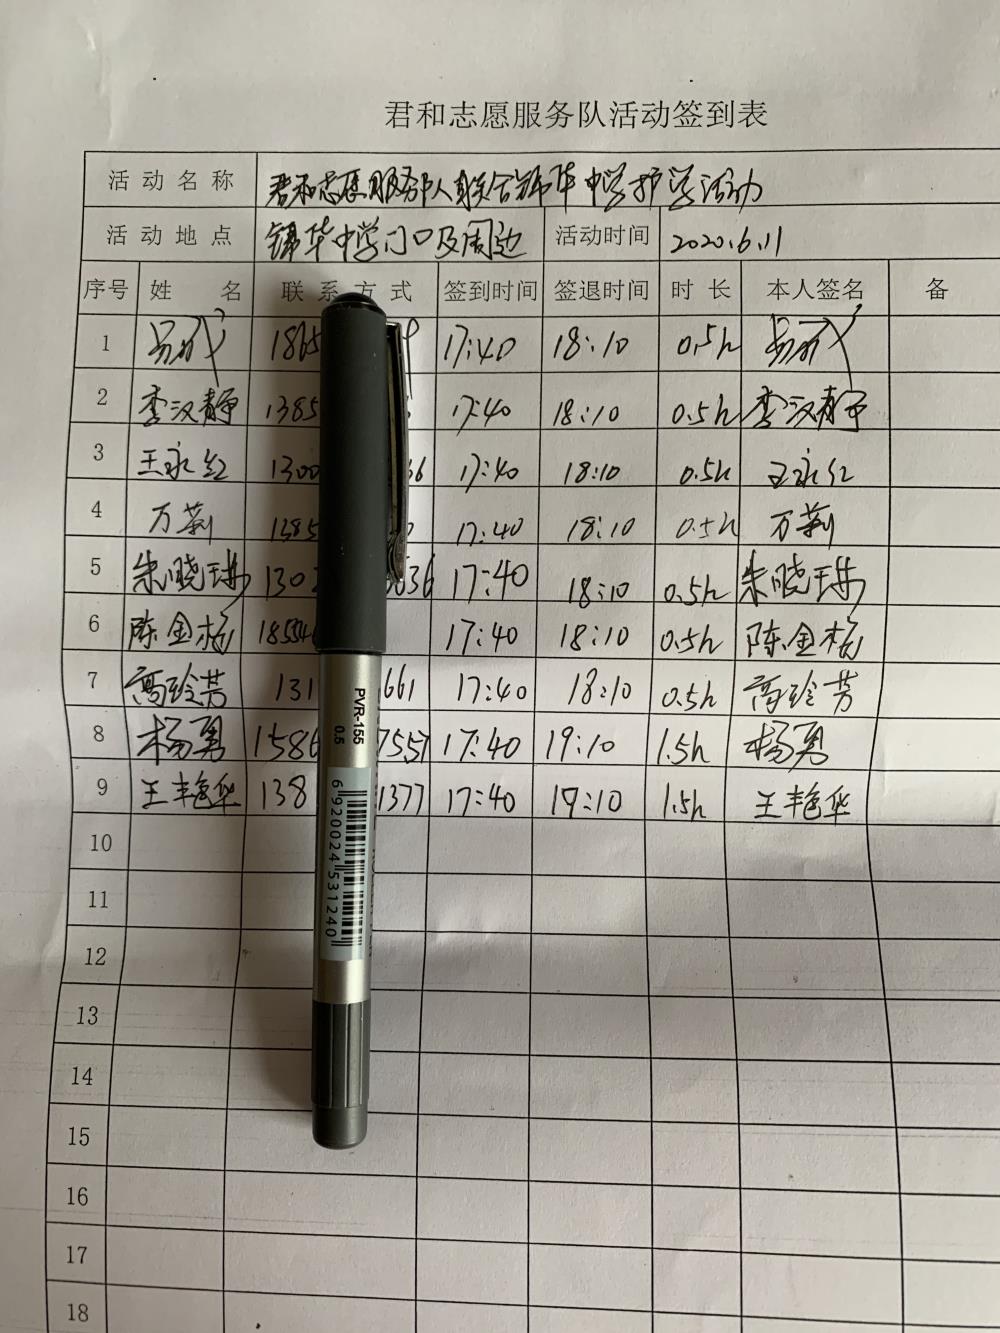 君和志愿服务队活动签到表
活动名称 君和志愿服务队联合锦华中学护学活动
活动地点 锦华中学门口及周边 活动时间 2020.6.11
序号 姓名 联系方式 签到时间 签退时间 时长 本人签名 备
1 1865 17:40 18:10 0.5h
2 李汉静 1385 17:40 18:10 0.5h 李汉静
3 王永红 1300 66 17:40 18:10 0.5h 王永红
4 万莉 1385 17:40 18:10 0.5h 万莉
5 朱晓 130 636 17:40 18:10 0.5h 朱晓
6 陈金梅 18554 17:40 18:10 0.5h 陈金梅
7 高玲芳 131 661 17:40 18:10 0.5h 高玲芳
8 杨勇 1586 7557 17:40 19:10 1.5h 杨勇
9 王艳华 138 1377 17:40 19:10 1.5h 王艳华
10
11
12
13
14
15
16
17
18
PVR-155
0.5
6 920024 531240